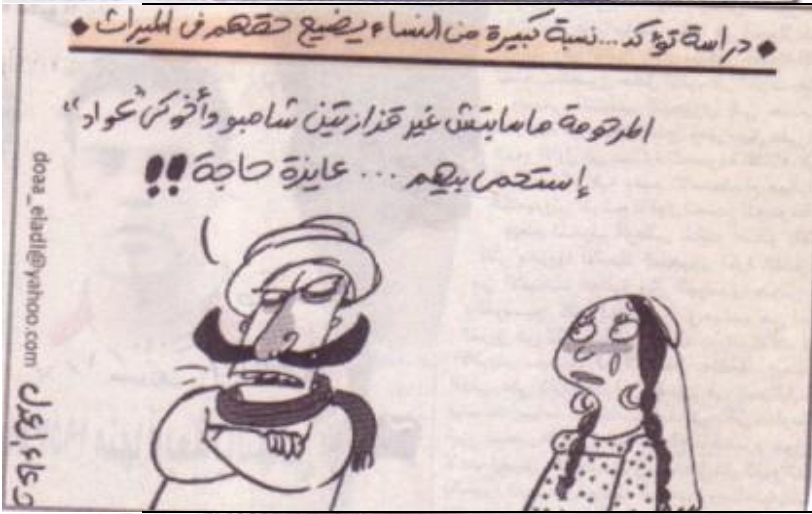 ◆ دراسة تؤكد... نسبة كبيرة من النساء يضيع حقهم فى الميراث ◆
المرحومة ماسابتش غير قزازتين شامبو وأخوكى "عواد"
إستحمى بيهم ... عايزة حاجة !!
doaa_eladl@yahoo.com
دعاء العدل